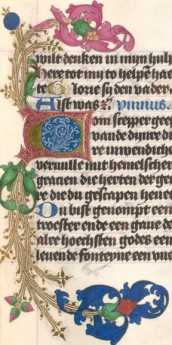 wilt denken in mijn hulp
here tot my to helpen hae
te Glorie sy den vader
Alst was z. ypnnus.
om scepper geest
vande dijnre di
re inwendiche
veruulle mit hemelscher
gracien die herten der ge
re die du gescapen henet
Du bist genompt een t
troester ende een gaue de
alre hoechsten godes een
leuende fonteyne een vuer